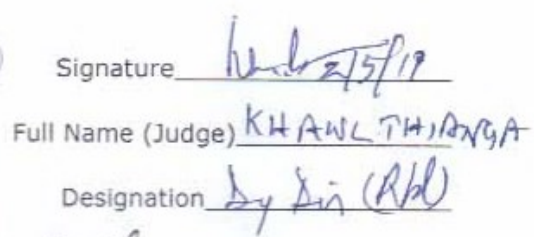 Signature 2/5/19
Full Name (Judge) KHAWLTHIANGA
Designation Dy Dir (Rtd)